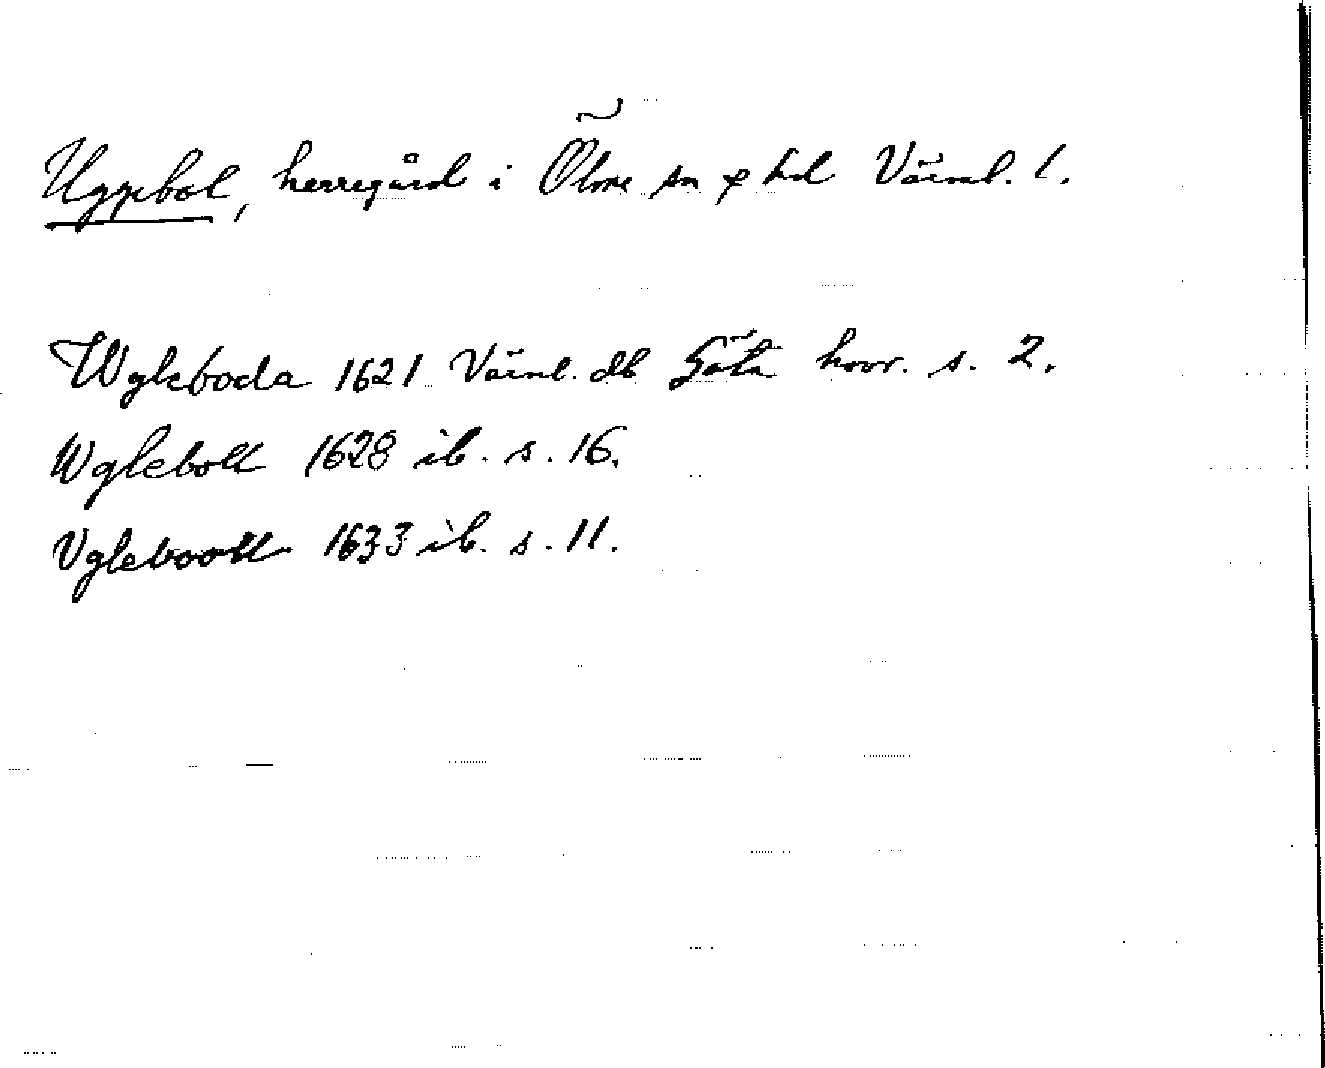 Uggebol, herregård i Ölme sn o hd Värml. l.
Wgleboda 1621 Värml. db Göta hovr. s. 2.
Wgleboll 1628 ib. s. 16.
Vglebooll 1633 ib. s. 11.